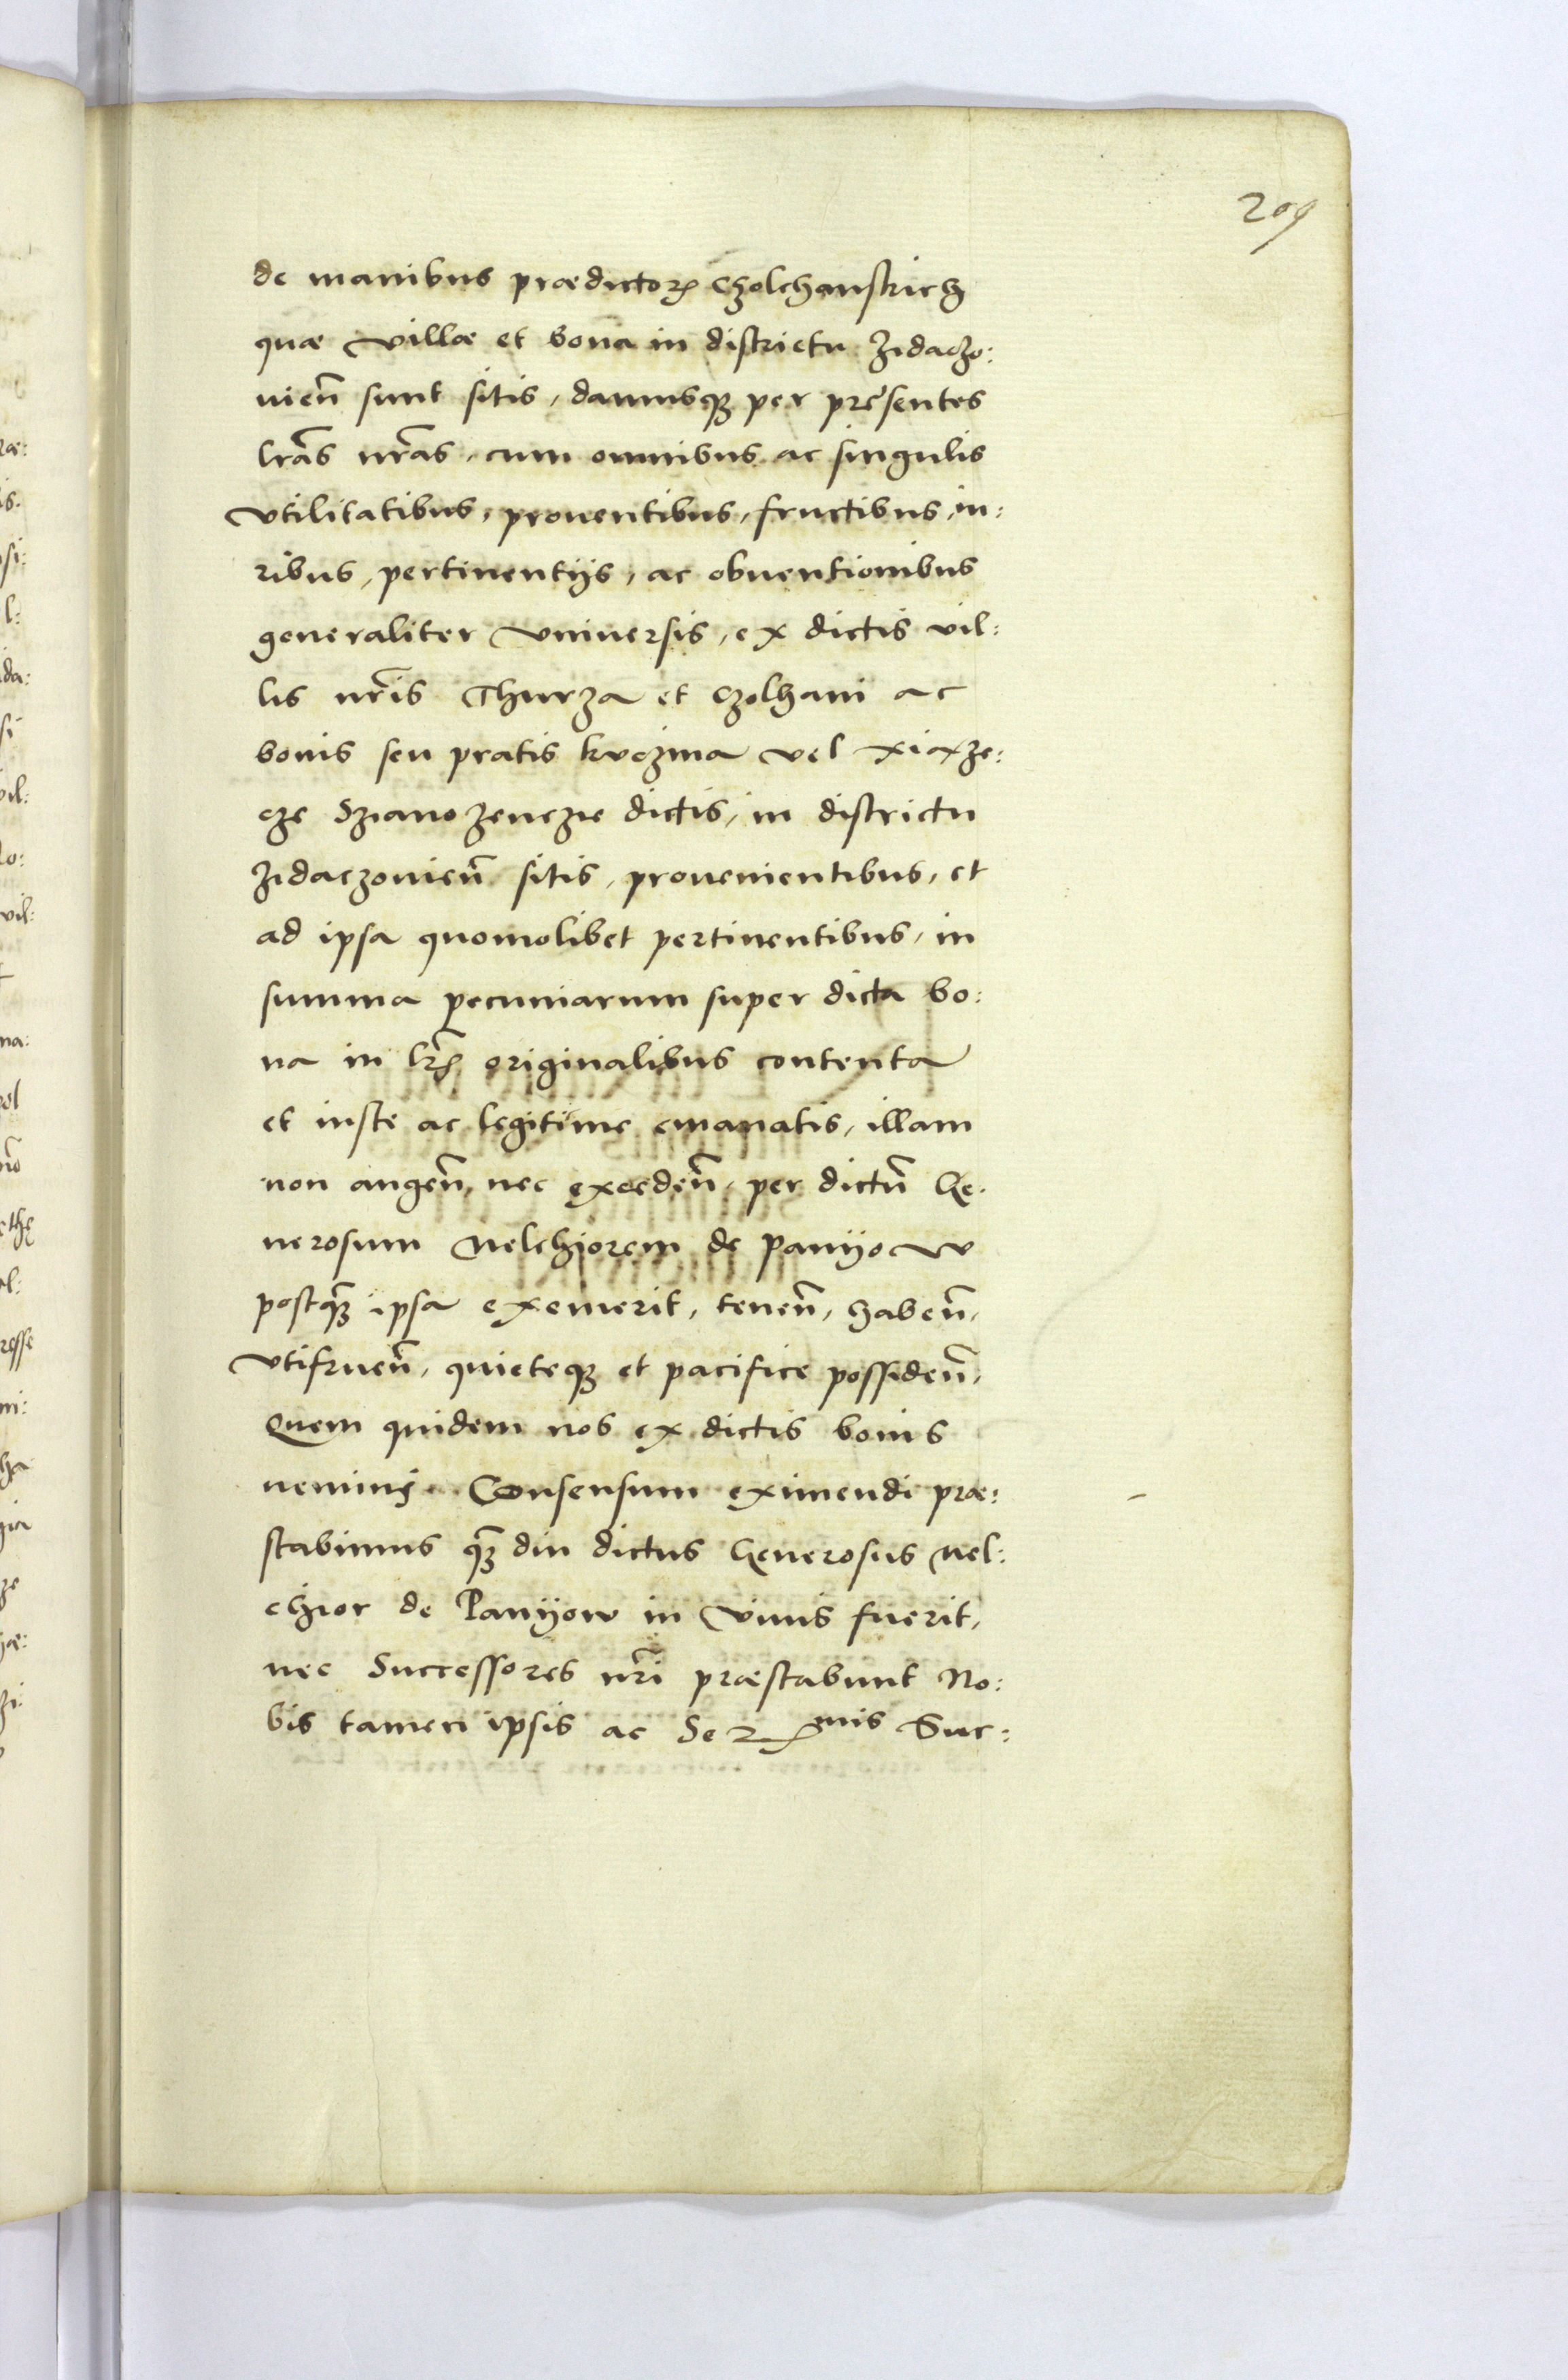 209
de manibus prædictoꝝ Czolchanstich
quæ villæ et bona in districtu Zidaczo:
uieñ sunt sitis, damusqꝫ per præsentes
lr̃as nr̃as, cum omnibus ac singulis
vtilitatibus, prouentibus, fructibus, iu:
ribus, pertinentijs, ac obuentionibus
generaliter vniuersis, ex dictis vil:
lis nr̃is Thurza et Czolhani ac
bonis seu pratis kuczma vel xiaze:
cze Szianozenczie dictis, in districtu
Zidaczouieñ sitis, prouenientibus, et
ad ipsa quomolibet pertinentibus, in
summa pecuniarum super dicta bo:
na in lr̃is originalibus contenta
et iuste ac legitime emanatis, illam
non augeñ, nec excedeñ, per dictũ Ge:
nerosum Melchiorem de paniio w
postqꝫ ipsa exemerit, teneñ, habeñ,
vtifrueñ, quieteqꝫ et pacifice possideñ,
Quem quidem nos ex dictis bonis
nemini Consensum eximendi præ:
stabimus qꝫ diu dictus Generosus Mel:
chior de Paniiow in viuis fuerit,
nec Successores nr̃i præstabunt No:
bis tamen ipsis ac Ser mis Suc: